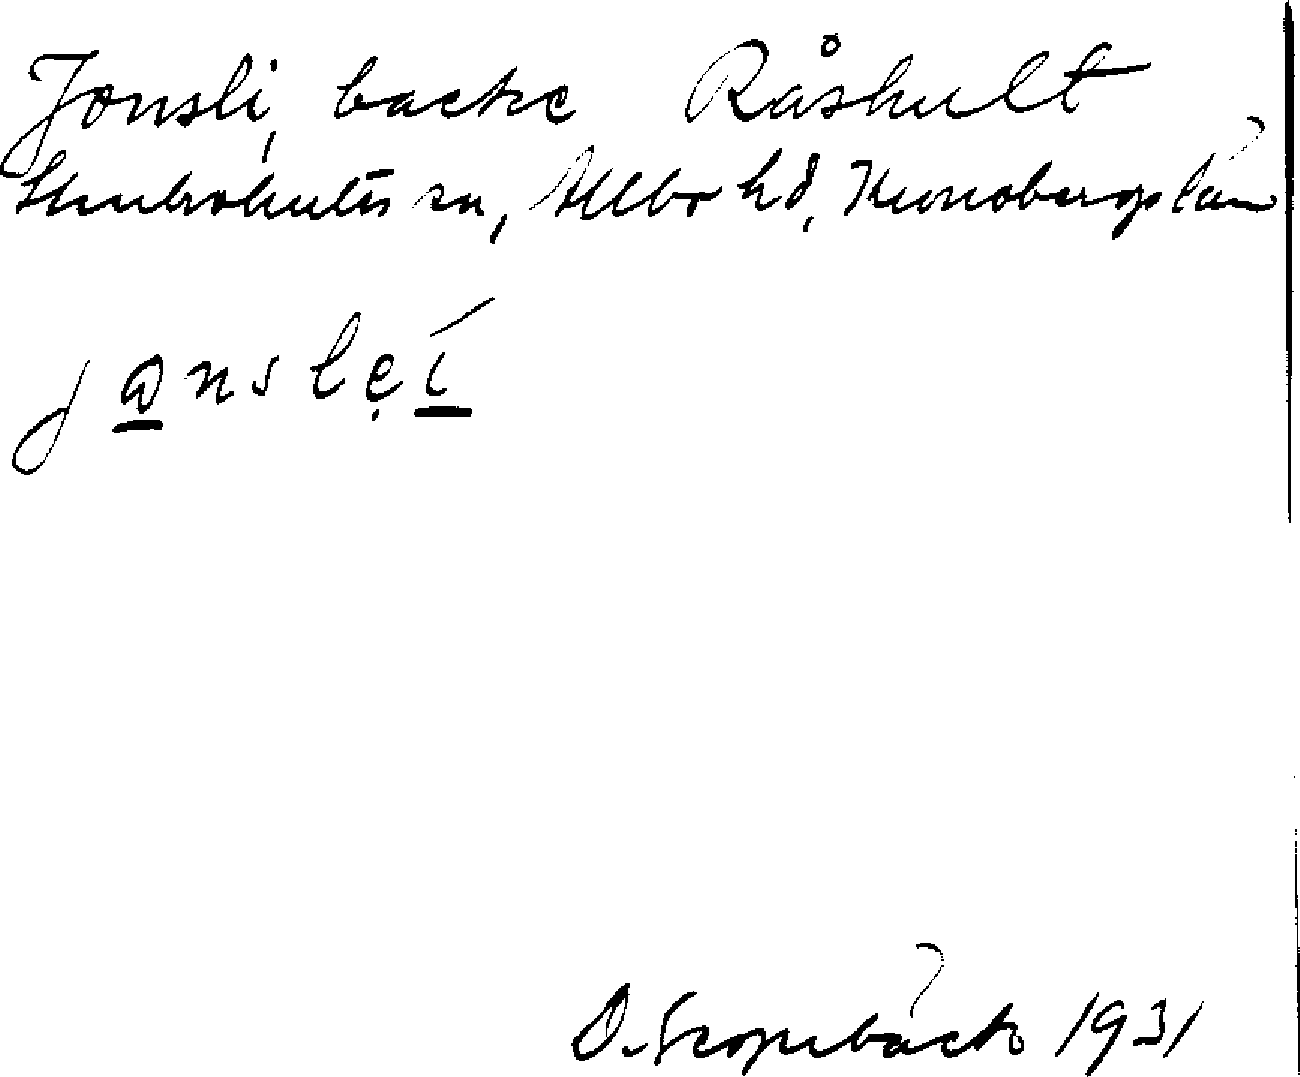 Jonsli, backe Råshult
Stenbrohults sn, Allbo hd, Kronobergs län
jɷnslẹi
1931